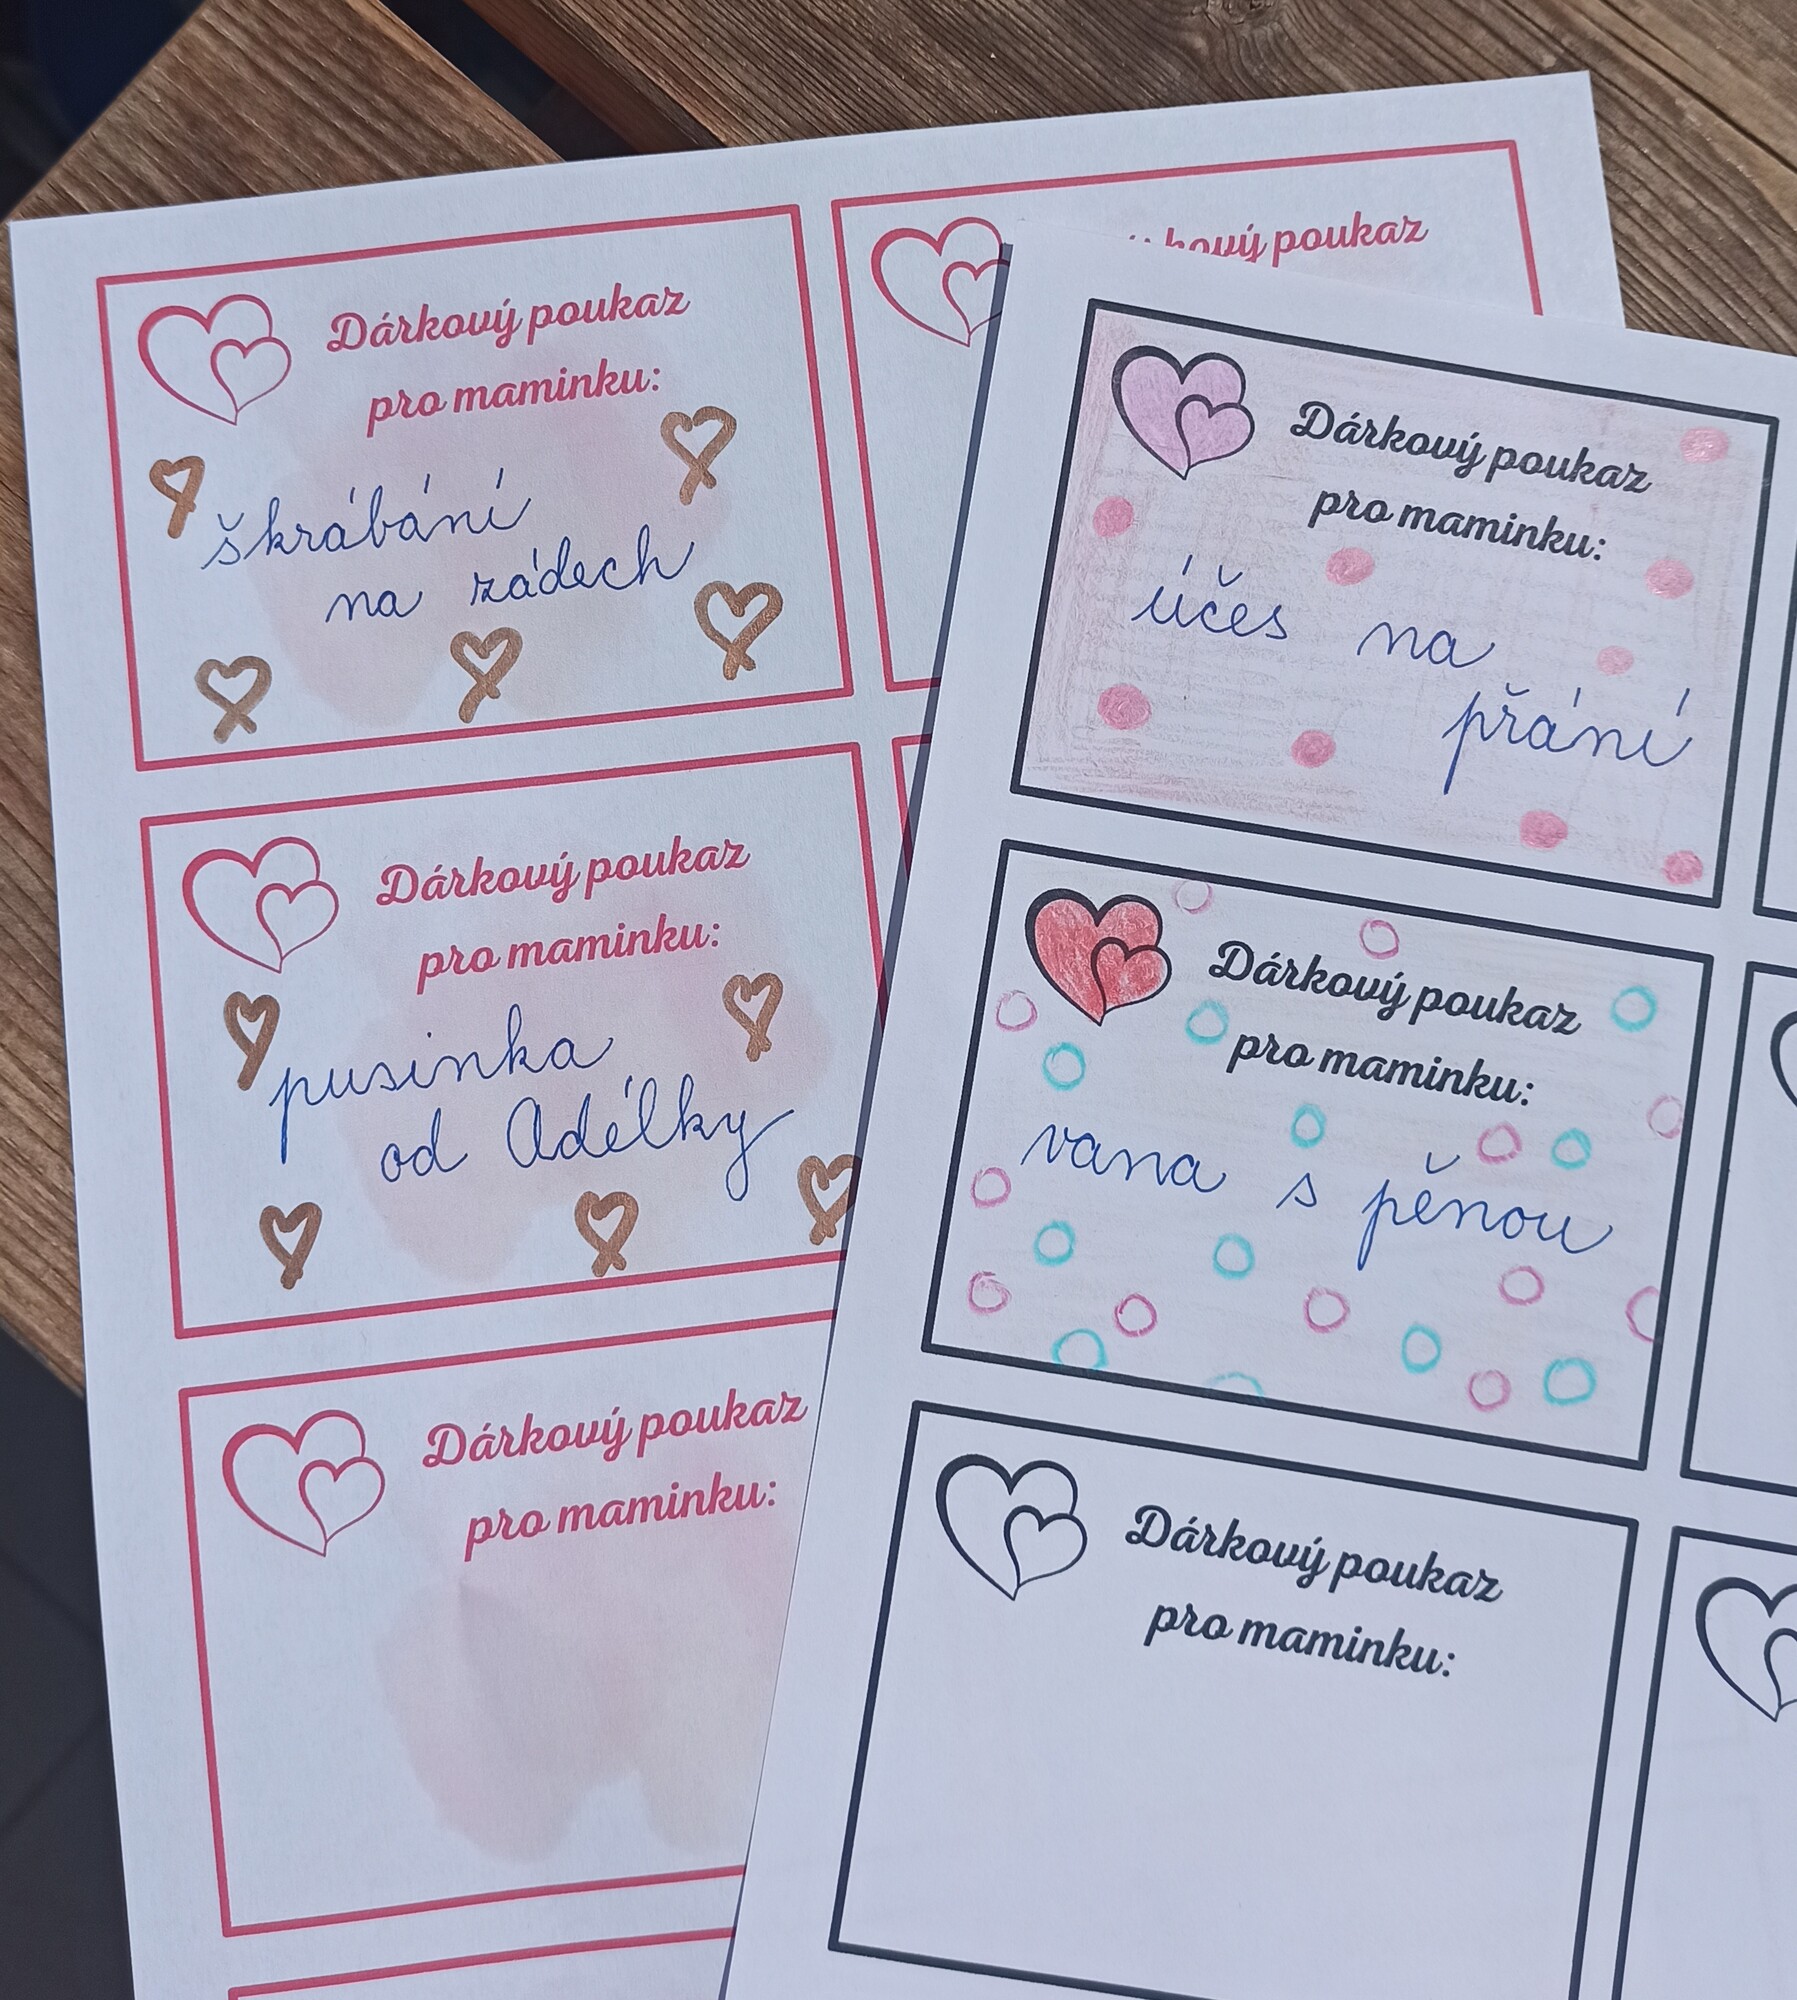 Dárkový poukaz
pro maminku:
škrábání
na zádech
Dárkový poukaz
pro maminku:
pusinka
od Adélky
Dárkový poukaz
pro maminku:
poukaz
Dárkový poukaz
pro maminku:
účes na
přání
Dárkový poukaz
pro maminku:
vana s pěnou
Dárkový poukaz
pro maminku: